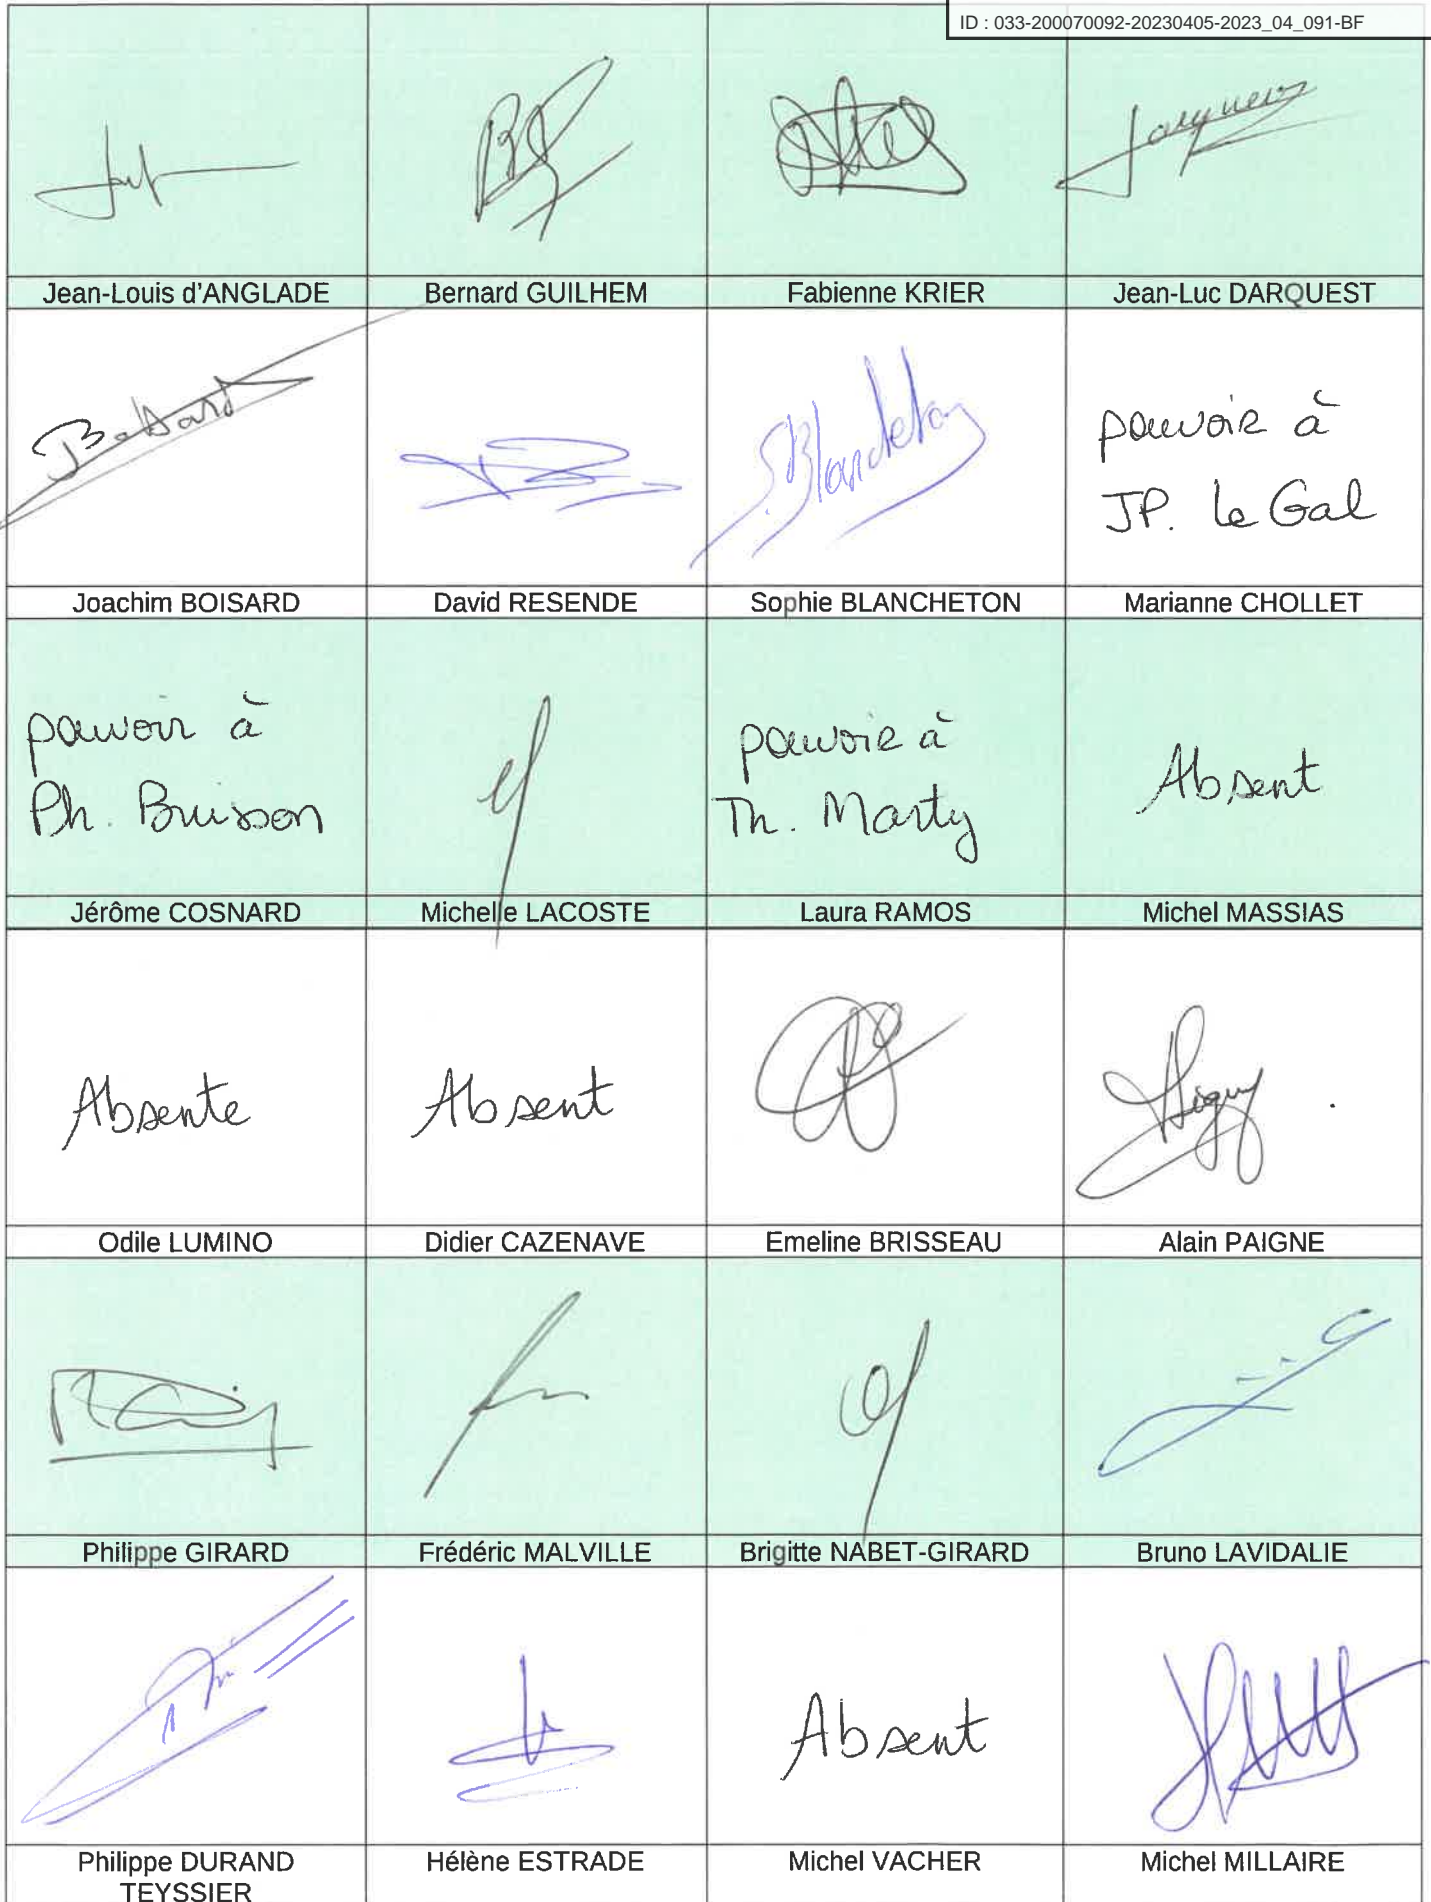 ID : 033-200070092-20230405-2023_04_091-BF
Jean-Louis d'ANGLADE
Bernard GUILHEM
Fabienne KRIER
Jean-Luc DARQUEST
Boisard
S. Blancheton
pouvoir à
JP. Le Gal
Joachim BOISARD
David RESENDE
Sophie BLANCHETON
Marianne CHOLLET
pouvoir à
Ph. Buisson
pouvoir à
Th. Marty
Absent
Jérôme COSNARD
Michelle LACOSTE
Laura RAMOS
Michel MASSIAS
Absente
Absent
Odile LUMINO
Didier CAZENAVE
Emeline BRISSEAU
Alain PAIGNE
Philippe GIRARD
Frédéric MALVILLE
Brigitte NABET-GIRARD
Bruno LAVIDALIE
Absent
Philippe DURAND
TEYSSIER
Hélène ESTRADE
Michel VACHER
Michel MILLAIRE